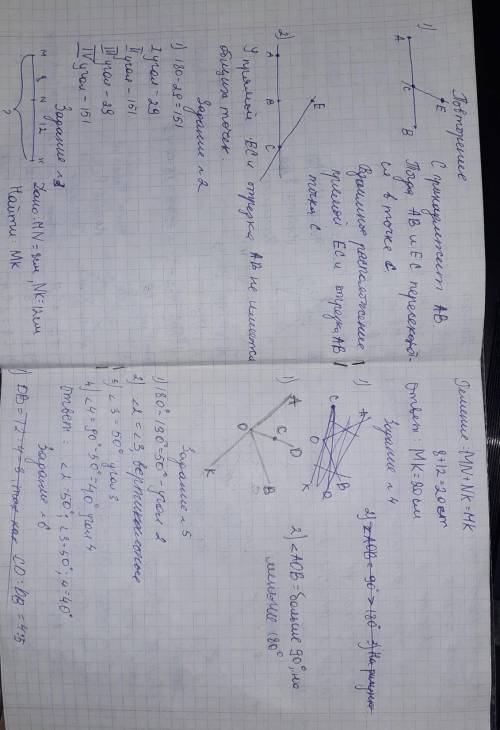 Повторение
1)
A
C
E
B
С принадлежит AB
Тогда AB и EC пересекают-
ся в точке C
Взаимное расположение
прямой EC и отрезка AB
точка C.
2)
A
B
C
E
У прямой EC и отрезка AB не имеется
общих точек.
Задание н 2
1) 180-29=151
I угол - 29
II угол - 151
III угол - 29
IV угол - 151
Задание н 3
M 8 N 12 K
?
Дано: MN=8см, NK=12см
Найти: MK
Решение: MN+NK=MK
8+12=20см
Ответ: MK=20см
Задание н 4
1)
C
A
O
B
K
2) ∠AOB = 90° > 180° 3) На рисунке
1)
A
O
C
D
B
K
2) ∠AOB = больше 90°, но
меньше 180°
Задание н 5
1) 180°-130°=50° - угол 2
2) ∠2=∠3, вертикальные
3) ∠3=50° угол 3
4) ∠4=90°-50°=40° угол 4
Ответ: ∠2=50°; ∠3=50°; ∠4=40°
Задание н 6